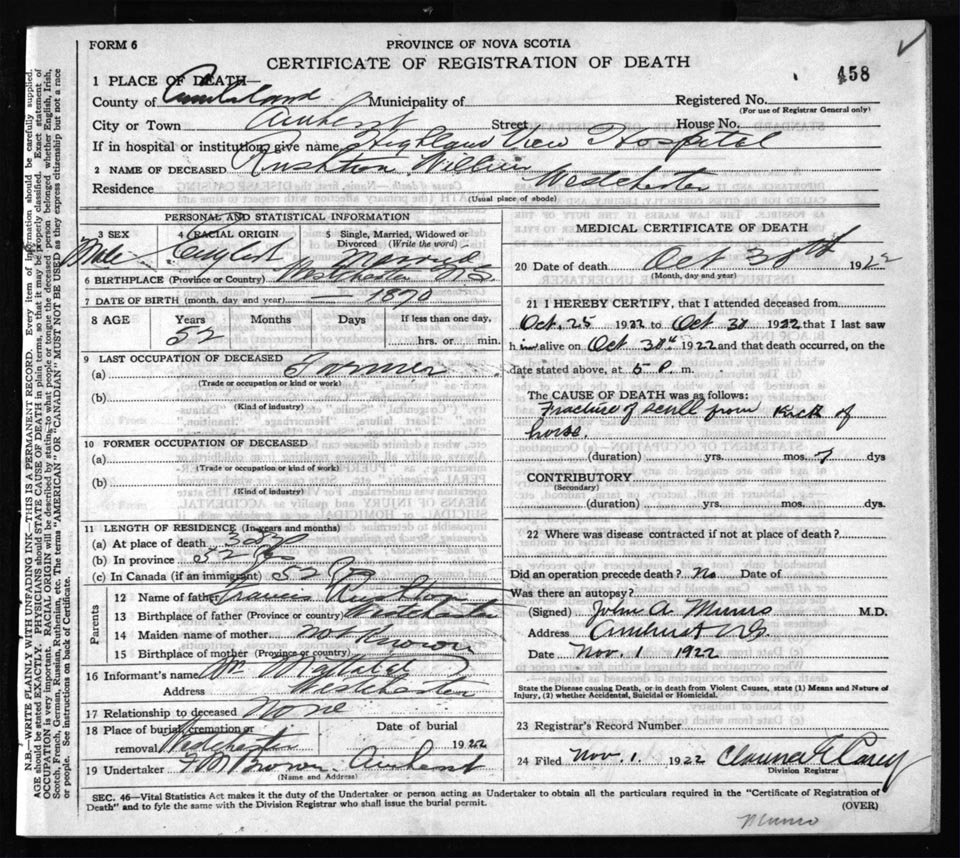 FORM 6
PROVINCE OF NOVA SCOTIA
CERTIFICATE OF REGISTRATION OF DEATH
458
1 PLACE OF DEATH—
County of Cumberland Municipality of Registered No.
(For use of Registrar General only)
City or Town Amherst Street House No.
If in hospital or institution, give name Highland View Hospital
2 NAME OF DECEASED Rushton William
Residence Westchester
(Usual place of abode)
PERSONAL AND STATISTICAL INFORMATION
3 SEX 4 RACIAL ORIGIN 5 Single, Married, Widowed or Divorced (Write the word)
Male English Married
6 BIRTHPLACE (Province or Country) Westchester N.S.
7 DATE OF BIRTH (month, day and year) — 1870
8 AGE Years Months Days If less than one day,
52 hrs. or min.
9 LAST OCCUPATION OF DECEASED
(a) Farmer
(Trade or occupation or kind or work)
(b)
(Kind of industry)
10 FORMER OCCUPATION OF DECEASED
(a)
(Trade or occupation or kind or work)
(b)
(Kind of industry)
11 LENGTH OF RESIDENCE (In years and months)
(a) At place of death
(b) In province 52
(c) In Canada (if an immigrant) 52
Parents
12 Name of father Francis Rushton
13 Birthplace of father (Province or country) Westchester
14 Maiden name of mother not known
15 Birthplace of mother (Province or country)
16 Informant's name Wm
Address Westchester
17 Relationship to deceased None
18 Place of burial, cremation or removal Westchester Date of burial 1922
19 Undertaker Brown Amherst
(Name and Address)
MEDICAL CERTIFICATE OF DEATH
20 Date of death Oct 30th 1922
(Month, day and year)
21 I HEREBY CERTIFY, that I attended deceased from
Oct. 25 1922 to Oct 30 1922 that I last saw
him alive on Oct 30th 1922 and that death occurred, on the
date stated above, at 5 P. m.
The CAUSE OF DEATH was as follows:
Fracture of scull from kick of
horse.
(duration) yrs. mos. 7 dys
CONTRIBUTORY
(Secondary)
(duration) yrs. mos. dys.
22 Where was disease contracted if not at place of death?
Did an operation precede death? No Date of
Was there an autopsy?
(Signed) John A Munro M.D.
Address Amherst NS
Date Nov. 1 1922
State the Disease causing Death, or in death from Violent Causes, state (1) Means and Nature of
Injury, (2) whether Accidental, Suicidal or Homicidal.
23 Registrar's Record Number
24 Filed Nov. 1. 1922
Division Registrar
SEC. 46—Vital Statistics Act makes it the duty of the Undertaker or person acting as Undertaker to obtain all the particulars required in the "Certificate of Registration of
Death" and to fyle the same with the Division Registrar who shall issue the burial permit.
(OVER)
Munro
N.B.—WRITE PLAINLY WITH UNFADING INK—THIS IS A PERMANENT RECORD. Every item of information should be carefully supplied.
AGE should be stated EXACTLY. PHYSICIANS should STATE CAUSE OF DEATH in plain terms, so that it may be properly classified. Exact statement of
OCCUPATION is very important. RACIAL ORIGIN will be described by stating to what people or tongue the deceased person belonged whether English, Irish,
Scotch, French, German, Russian, Ruthenian, etc. The terms "AMERICAN" OR "CANADIAN" MUST NOT BE USED as they express citizenship but not a race
or people. See instructions on back of Certificate.